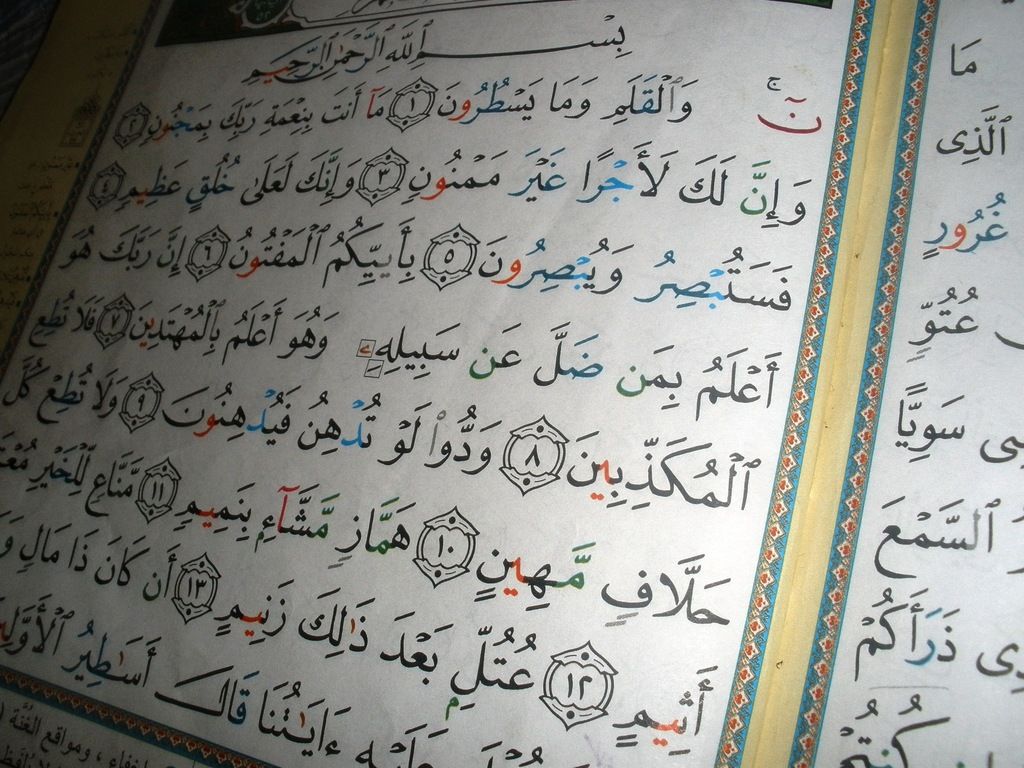 بِسْمِ ٱللَّهِ ٱلرَّحْمَٰنِ ٱلرَّحِيمِ
نٓ ۚ وَٱلْقَلَمِ وَمَا يَسْطُرُونَ ١ مَآ أَنتَ بِنِعْمَةِ رَبِّكَ بِمَجْنُونٍ ٢
وَإِنَّ لَكَ لَأَجْرًا غَيْرَ مَمْنُونٍ ٣ وَإِنَّكَ لَعَلَىٰ خُلُقٍ عَظِيمٍ ٤
فَسَتُبْصِرُ وَيُبْصِرُونَ ٥ بِأَييِّكُمُ ٱلْمَفْتُونُ ٦ إِنَّ رَبَّكَ هُوَ
أَعْلَمُ بِمَن ضَلَّ عَن سَبِيلِهِۦ وَهُوَ أَعْلَمُ بِٱلْمُهْتَدِينَ ٧ فَلَا تُطِعِ
ٱلْمُكَذِّبِينَ ٨ وَدُّوا۟ لَوْ تُدْهِنُ فَيُدْهِنُونَ ٩ وَلَا تُطِعْ كُلَّ
حَلَّافٍ مَّهِينٍ ١٠ هَمَّازٍ مَّشَّآءٍ بِنَمِيمٍ ١١ مَّنَّاعٍ لِّلْخَيْرِ
أَثِيمٍ ١٢ عُتُلٍّ بَعْدَ ذَٰلِكَ زَنِيمٍ ١٣ أَن كَانَ ذَا مَالٍ
ءَايَٰتُنَا قَالَ أَسَٰطِيرُ
ومواقع الغُنَّة
مَا
ٱلَّذِى
غُرُورٍ
عُتُوٍّ
سَوِيًّا
ٱلسَّمْعَ
ذَرَأَكُمْ
كُنتُمْ